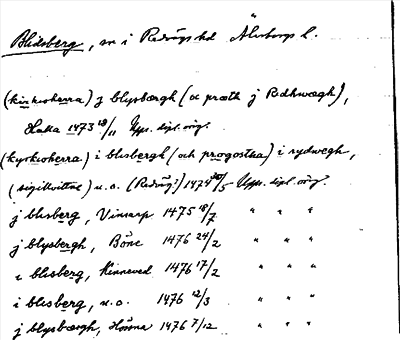 Blidsberg, sn i Redvägs hd Älvsborgs l.
(kirkioherra) j blysbærgh (oc præth j Redhwægh),
Hulla 1473 18/11 Upps. dipl. orig.
(kyrkioherra) i blisbergh (och progostha) i rydwegh,
(sigillvittne) u.o. (Redväg) 1474 20/5 Upps. dipl. orig.
j blisberg, Vinsarp 1475 18/7 " " "
j blysbergh, Böne 1476 24/2 " " "
i blisberg, Kinneved 1476 17/2 " " "
i blisberg, u.o. 1476 12/3 " " "
j blysbærgh, Hössna 1476 7/12 " " "